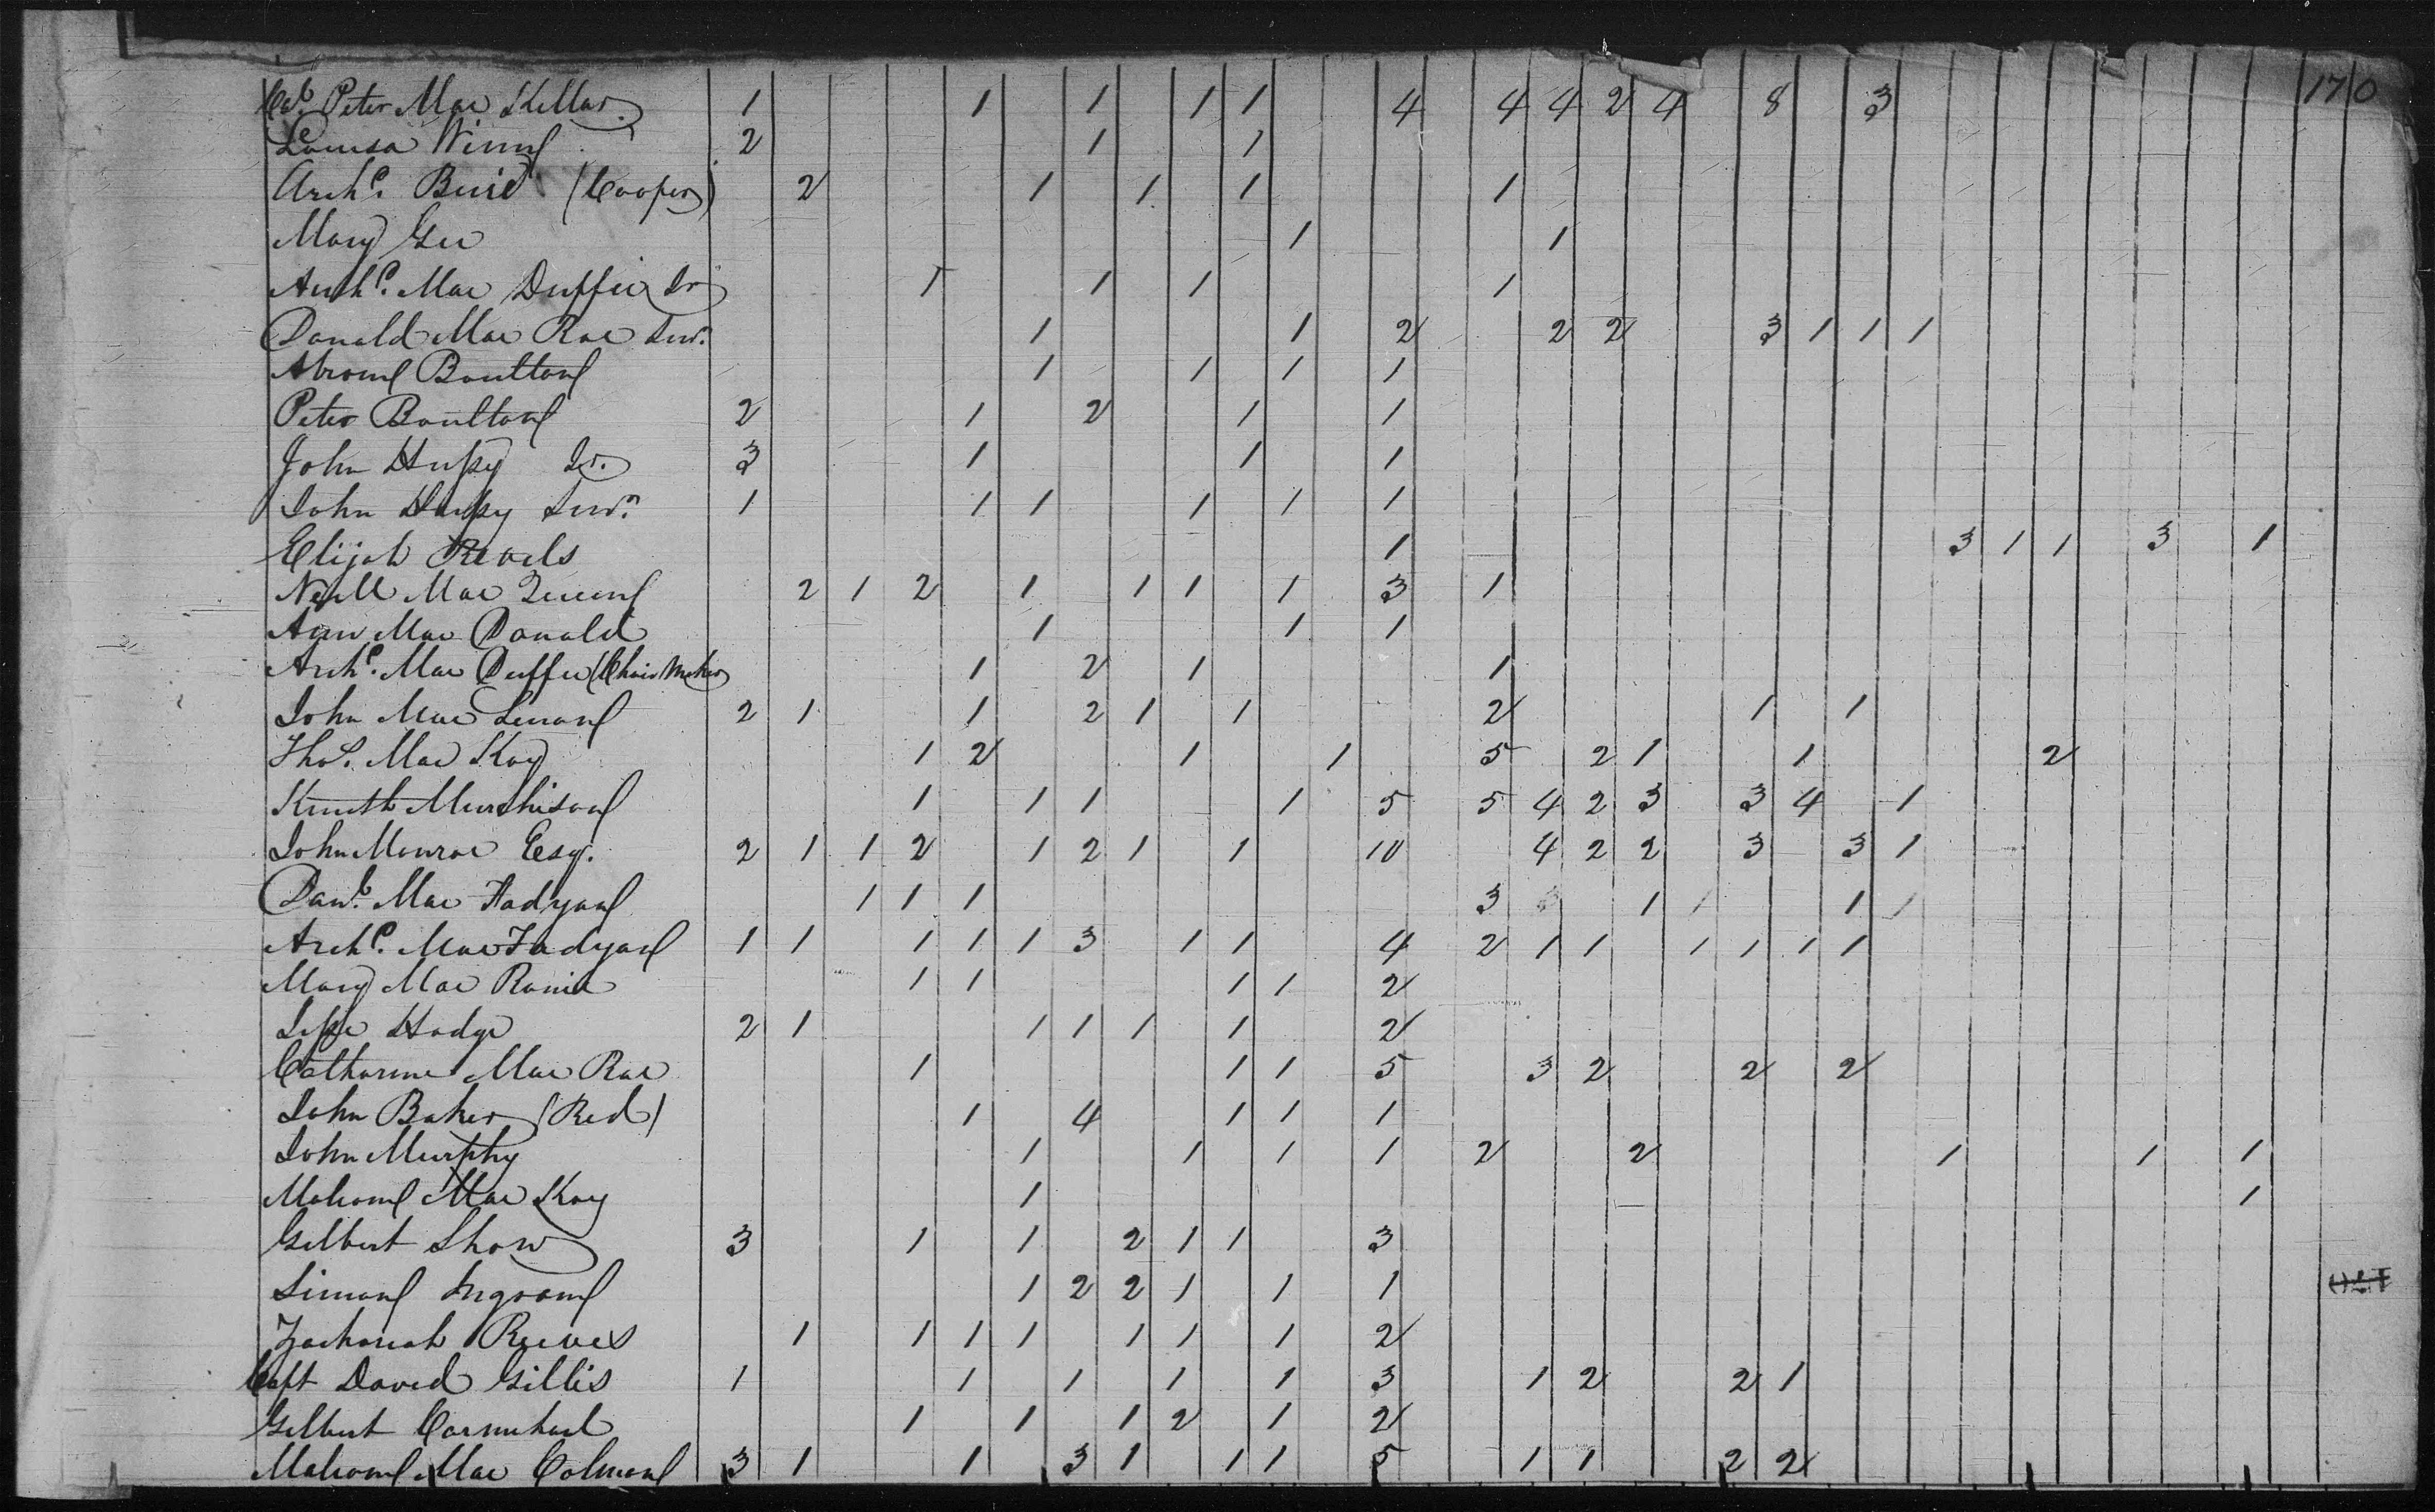 170
Col. Peter Mac Kellar 1 1 1 1 1 4 4 4 2 4 8 3
Louisa Winn 2 1 1
Archd. Buie (Cooper) 2 1 1 1 1
Mary Gee 1 1
Archd. Mac Duffie Sr 1 1 1 1
Donald Mac Rae Senr. 1 1 2 2 2 3 1 1 1
Abram Boulton 1 1 1 1
Peter Boulton 2 1 2 1 1
John Hussy Jr. 3 1 1 1
John Hussy Senr. 1 1 1 1 1 1
Elijah Revels 1 3 1 1 3 1
Neill Mac Queen 2 1 2 1 1 1 1 3 1
Ann Mac Donald 1 1 1
Archd. Mac Duffie (Chair Maker 1 2 1 1
John Mac Lenan 2 1 1 2 1 1 2 1 1
Thos. Mac Kay 1 2 1 1 5 2 1 1 2
Kenneth Murchison 1 1 1 1 5 5 4 2 3 3 4 1
John Monroe Esqr. 2 1 1 2 1 2 1 1 10 4 2 2 3 3 1
Danl. Mac Fadyan 1 1 1 3 1 1 1 1
Archd. Mac Fadyan 1 1 1 1 1 3 1 1 4 2 1 1 1 1 1 1
Mary Mac Ranie 1 1 1 1 2
Jesse Hodge 2 1 1 1 1 1 2
Catharine Mac Rae 1 1 1 5 3 2 2 2
John Baker (Red) 1 4 1 1 1
John Murphy 1 1 1 1 2 2 1 1 1
Malcom Mac Kay 1 1
Gilbert Shaw 3 1 1 2 1 1 3
Simon Ingram 1 2 2 1 1 1
Zachariah Reeves 1 1 1 1 1 1 1 2
Capt David Gillis 1 1 1 1 1 3 1 2 2 1
Gilbert Carmichael 1 1 1 2 1 2
Malcom Mac Colman 3 1 1 3 1 1 1 5 1 1 2 2